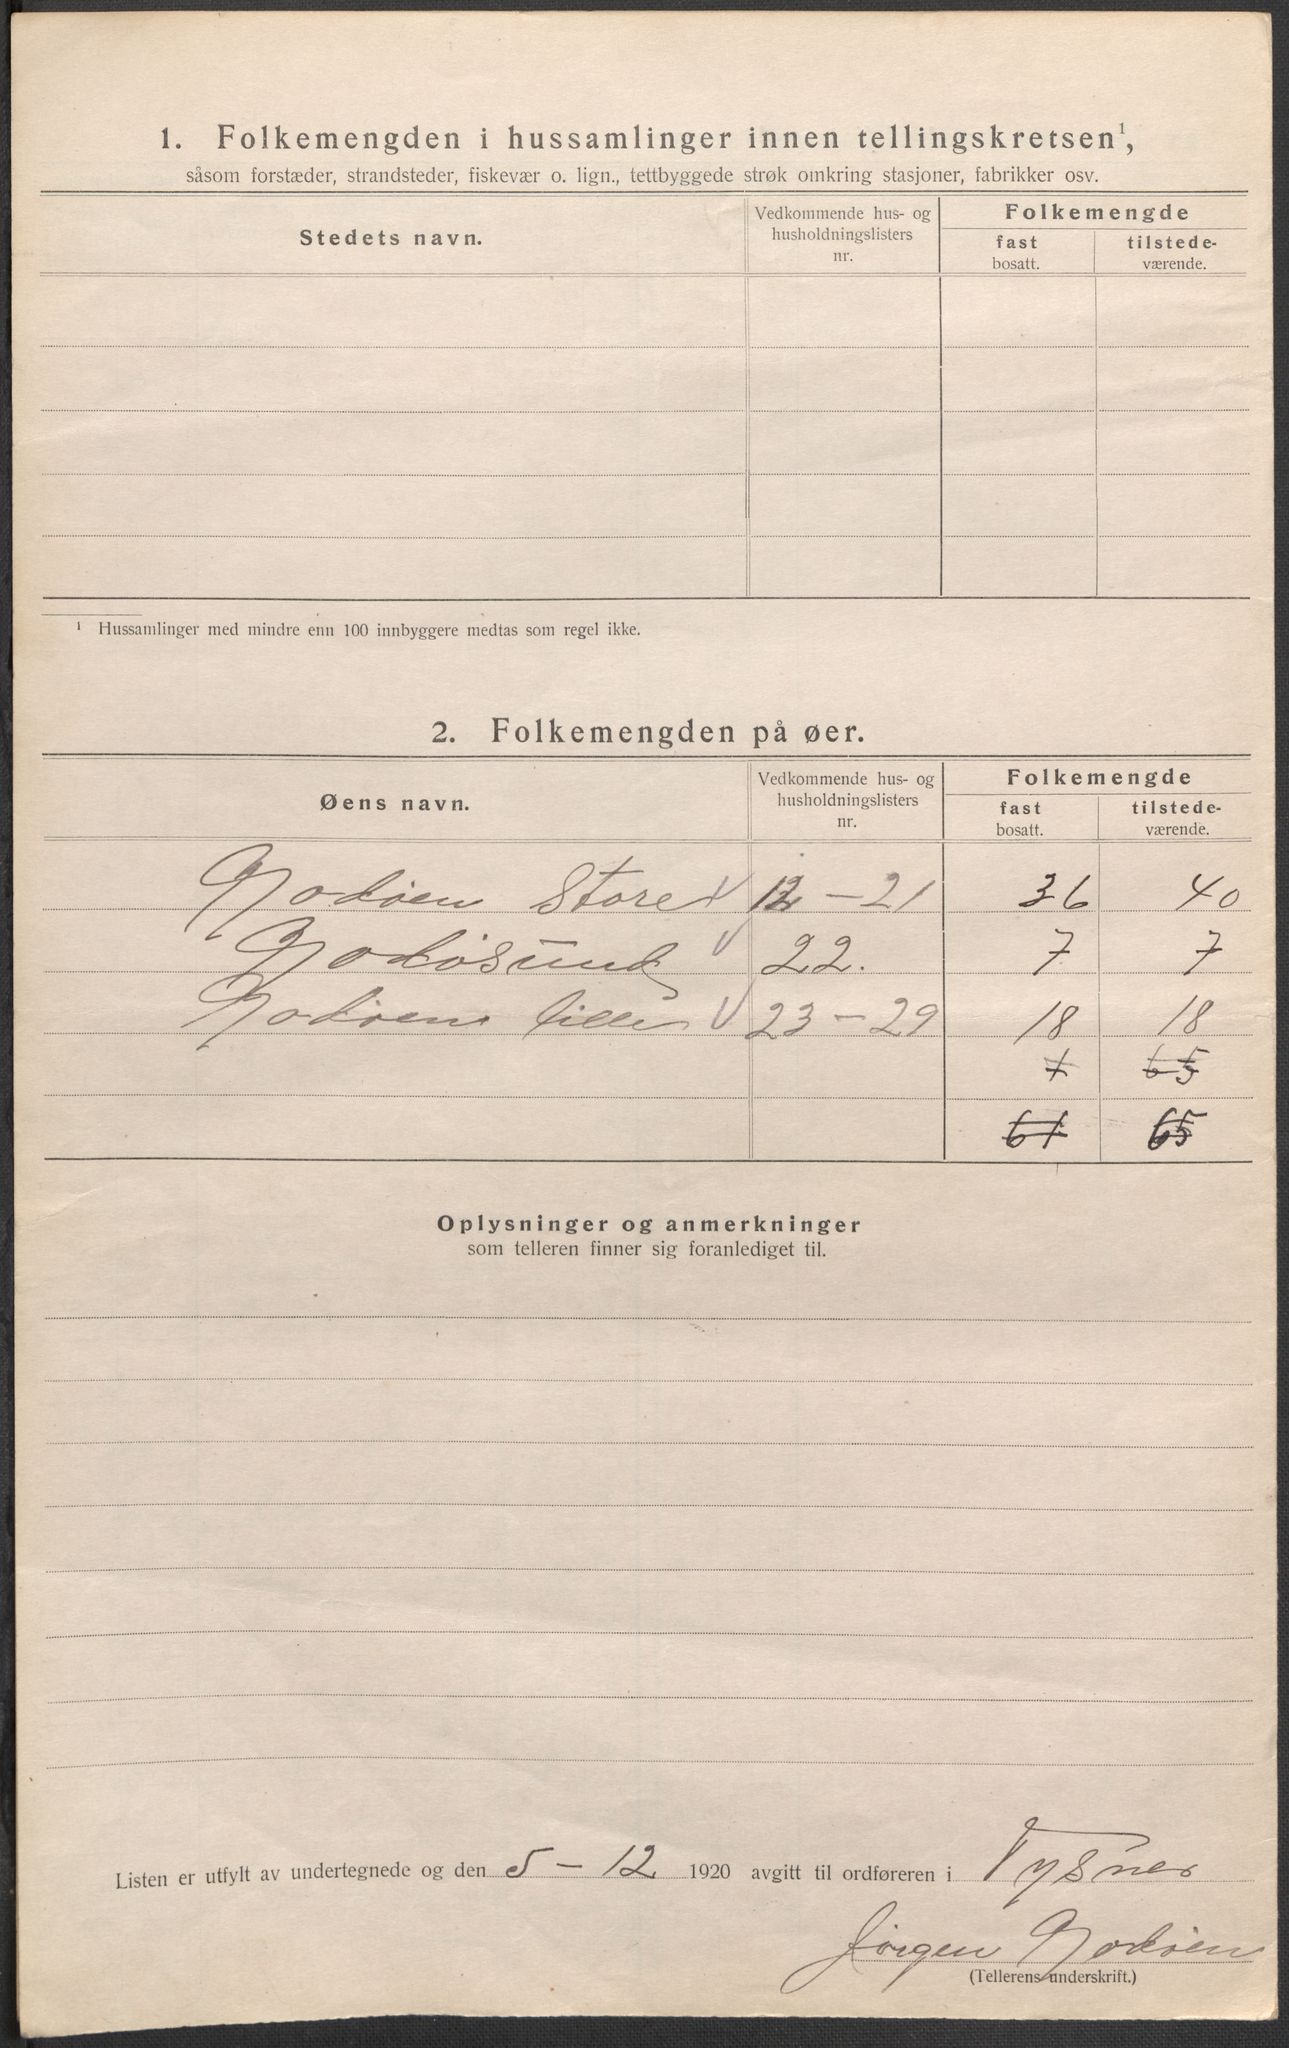 1. Folkemengden i hussamlinger innen tellingskretsen¹,
såsom forstæder, strandsteder, fiskevær o. lign., tettbyggede strøk omkring stasjoner, fabrikker osv.
Stedets navn.
Vedkommende hus- og husholdningslisters nr.
Folkemengde
fast bosatt.
tilstede-værende.
¹ Hussamlinger med mindre enn 100 innbyggere medtas som regel ikke.
2. Folkemengden på øer.
Øens navn.
Vedkommende hus- og husholdningslisters nr.
Folkemengde
fast bosatt.
tilstede-værende.
Godøen Store V 12 - 21 36 40
Godøsund V 22. 7 7
Godøen lille V 23 - 29 18 18
65
61 65
Oplysninger og anmerkninger
som telleren finner sig foranlediget til.
Listen er utfylt av undertegnede og den 5 - 12 1920 avgitt til ordføreren i Tysnes
Jørgen Godøen
(Tellerens underskrift.)